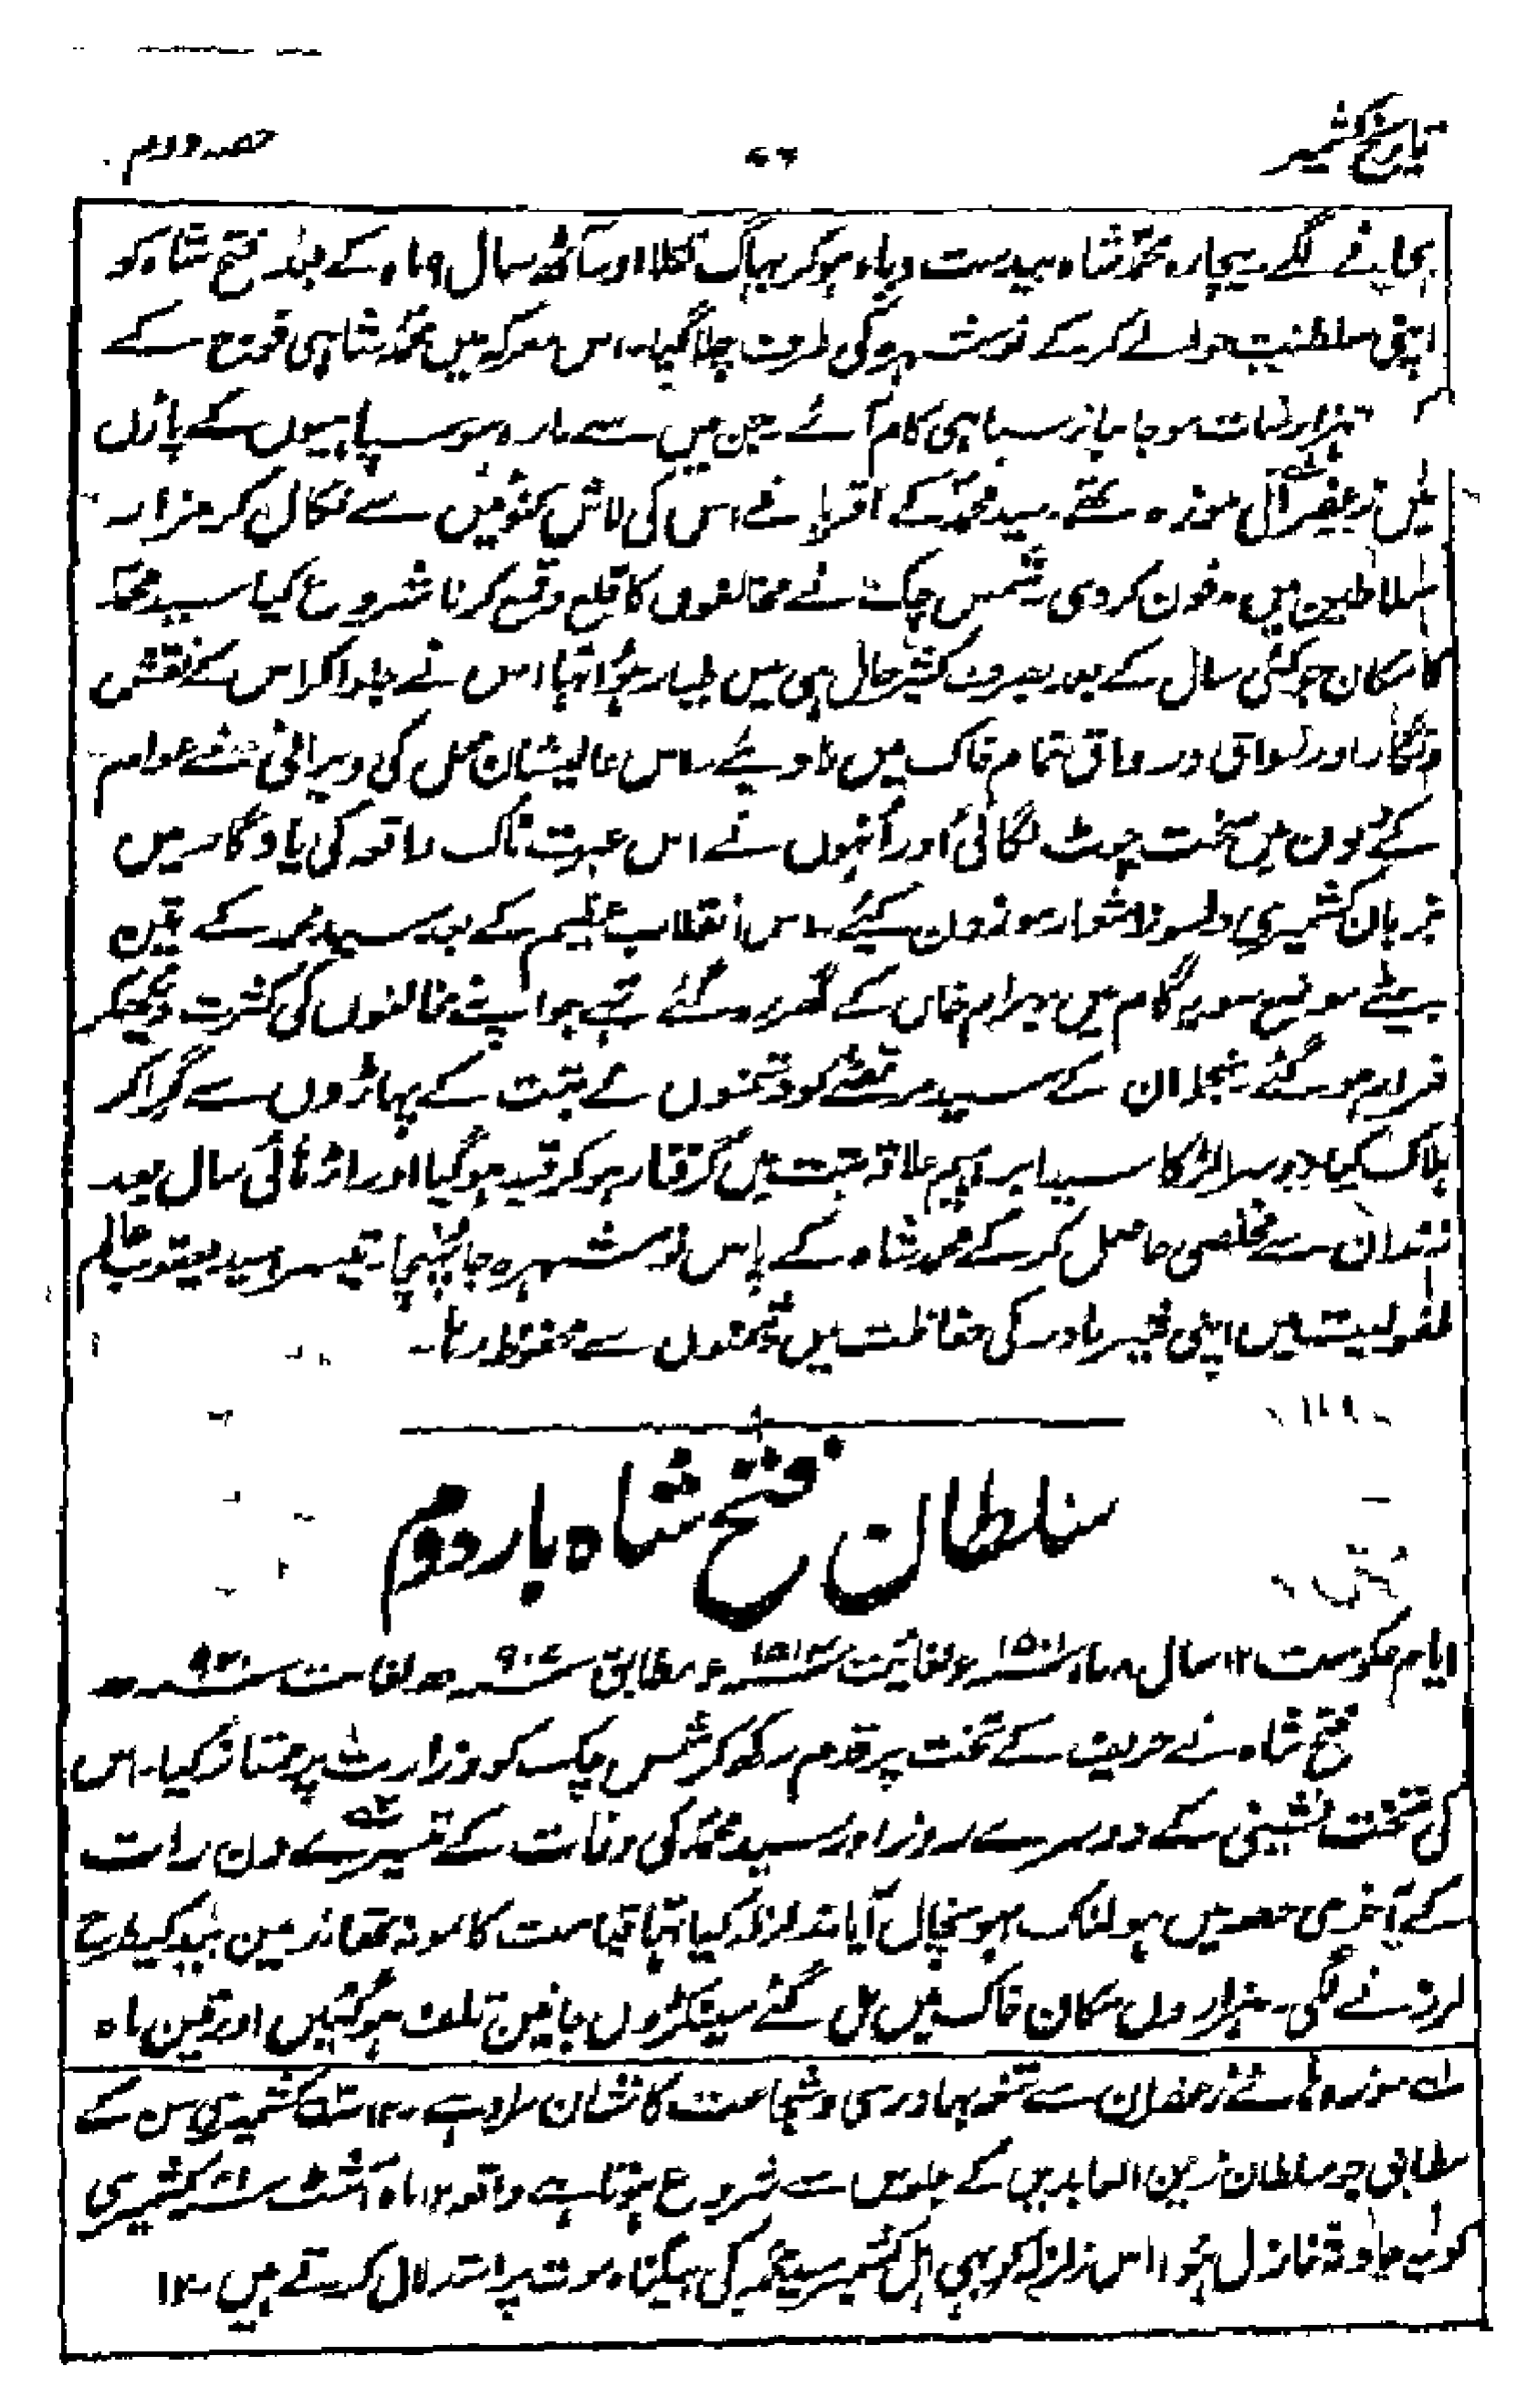 تاریخ کشمیر
۷۶
حصہ دوم
بجانے لگے۔ بیچارہ محمد شاہ بیدست وپا ہو کر بہاگ نکلا اور آٹھ سال ۹ ماہ کے بعد فتح شاہ کو
اپنی سلطنت حوالے کر کے نوشہرہ کی طرف چلا گیا۔ اس معرکہ میں محمد شاہی فوج کے
ہزار سات سو جانباز سپاہی کام آئے۔ جن میں سے بارہ سو سپاہیوں کے پاؤں
میں زعفرانی موزہ تھے۔ سید محمد کے اقربا نے اس کی لاش کنوئیں سے نکال کر مزار
سلاطین میں مدفون کر دی۔ شمس چک نے مخالفوں کا قلع وقمع کرنا شروع کیا سید محمد
کا مکان جو کئی سال کے بعد بصرف کثیر حال ہی میں طیار ہوا تہا اس نے جلوا کر اس کے نقش
ونگار اور طواق ورواق تمام خاک میں ملا دیئے۔ اس عالیشان محل کی ویرانی نے عوام
کے دلوں میں سخت چوٹ لگائی اور انہوں نے اس عبرت ناک واقعہ کی یادگار میں
بزبان کشمیری دلسوز اشعار موزون کیئے۔ اس انقلاب عظیم کے بعد سید محمد کے تین
بیٹے موضع سویہ گام میں بہرام خاں کے گھر رہ گئے تہے جو اپنے مخالفوں کی کثرت دیکھکر
فرار ہو گئے منجملہ ان کے سید مرتضےٰ کو دشمنوں نے تبت کے پہاڑوں سے گرا کر
ہلاک کیا دوسرا لڑکا سید ابراہیم علاقہ تبت میں گرفتار ہو کر قید ہو گیا اور اڑہائی سال بعد
زندان سے مخلصی حاصل کر کے محمد شاہ کے پاس نوشہرہ جا پہنچا۔ تیسرا سید یعقوب عالم
طفولیت میں اپنی شیر مادر کی حفاظت میں دشمنوں سے محفوظ رہا۔
سلطان فتح شاہ بار دوم
ایام حکومت ۱۲ سال ۸ ماہ ۱۵۰۱ء لغایت ۱۵۱۴ء مطابق ۹۰۷ھ لغایت ۹۲۰ھ
فتح شاہ نے حریف کے تخت پر قدم رکھ کر شمس چک کو وزارت پر ممتاز کیا۔ اس
کی تخت نشینی کے دوسرے روز اور سید محمد کی وفات کے تیسرے دن رات
کے آخری حصہ میں ہولناک بہونچال آیا زلزلہ کیا تہا قیامت کا نمونہ تھا زمین بید کیطرح
لرزنے لگی۔ ہزاروں مکان خاک میں مل گئے سینکڑوں جانیں تلف ہو گئیں اور تین ماہ
لہ موزہ ہائے زعفران سے تمغہ بہادری و شجاعت کا نشان مراد ہے۔ ۱۲ کشمیری سن کے
مطابق جو سلطان زین العابدین کے جلوس سے شروع ہوتا ہے واقعہ ۱۲ ماہ کشمیری
کو یہ حادثہ نازل ہوا اس زلزلہ کو بہی اہل کشمیر سید محمد کی بیگناہ موت پر استدلال کرتے ہیں۔ ۱۲